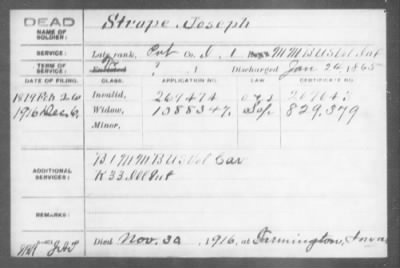 DEAD
NAME OF SOLDIER:
Strope Joseph
SERVICE:
Late rank, Pvt Co. 1 MMB US Vol Inf
TERM OF SERVICE:
Enlisted Discharged Jan 24 1865
DATE OF FILING.
CLASS.
APPLICATION NO.
LAW.
CERTIFICATE NO.
1879 Feb 26
Invalid,
267474
1916 Dec 6.
Widow,
1088347.
829.379
Minor,
ADDITIONAL SERVICES:
B 1 MMB US Vol Cav
K 33 Ill Inf
REMARKS:
Died Nov. 30, 1916, at Farmington, Iowa